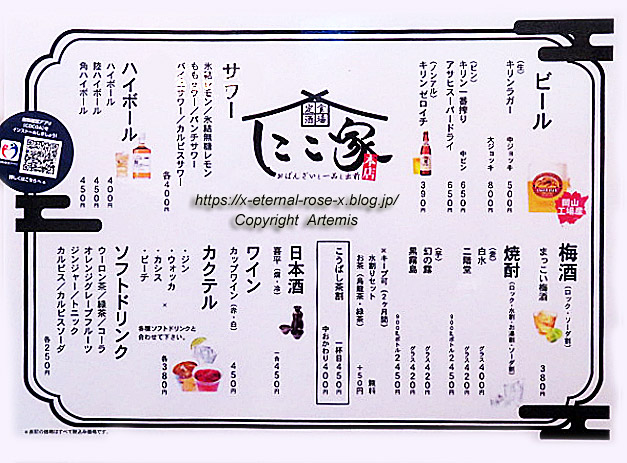 ビール
(生)
キリンラガー 中ジョッキ 500円
大ジョッキ 800円
(ビン)
キリン一番搾り 中ビン 650円
アサヒスーパードライ 650円
(ノンアル)
キリンゼロイチ 390円
岡山
工場産
定食
酒場
にこ家
本店
おばんざい
https://x-eternal-rose-x.blog.jp/
Copyright Artemis
サワー
氷結レモン／氷結無糖レモン
ももサワー／パンチサワー
カルピスサワー
各400円
ハイボール
ハイボール 400円
陸ハイボール 450円
角ハイボール 450円
インストールしましょう!
詳しくはこちらへ
梅酒
(ロック・ソーダ割)
まっこい梅酒 380円
焼酎
(ロック・水割・お湯割・ソーダ割)
(麦)
白水 グラス 400円
二階堂 グラス 420円
900mlボトル 2450円
(芋)
幻の露 グラス 420円
黒霧島 グラス 420円
900mlボトル 2450円
※キープ可(2ヶ月間)
水割りセット 無料
お茶(烏龍茶・緑茶) +50円
こうばし茶割 一杯目450円
中おかわり400円
日本酒
喜平(燗・冷) 一合 450円
ワイン
カップワイン(赤・白) 450円
カクテル
・ジン
・ウォッカ
・カシス
・ピーチ
×
各種ソフトドリンクと
合わせて下さい。
各380円
ソフトドリンク
ウーロン茶／緑茶／コーラ
オレンジ／グレープフルーツ
ジンジャー／トニック
カルピス／カルピスソーダ
各250円
※表記の価格はすべて税込み価格です。